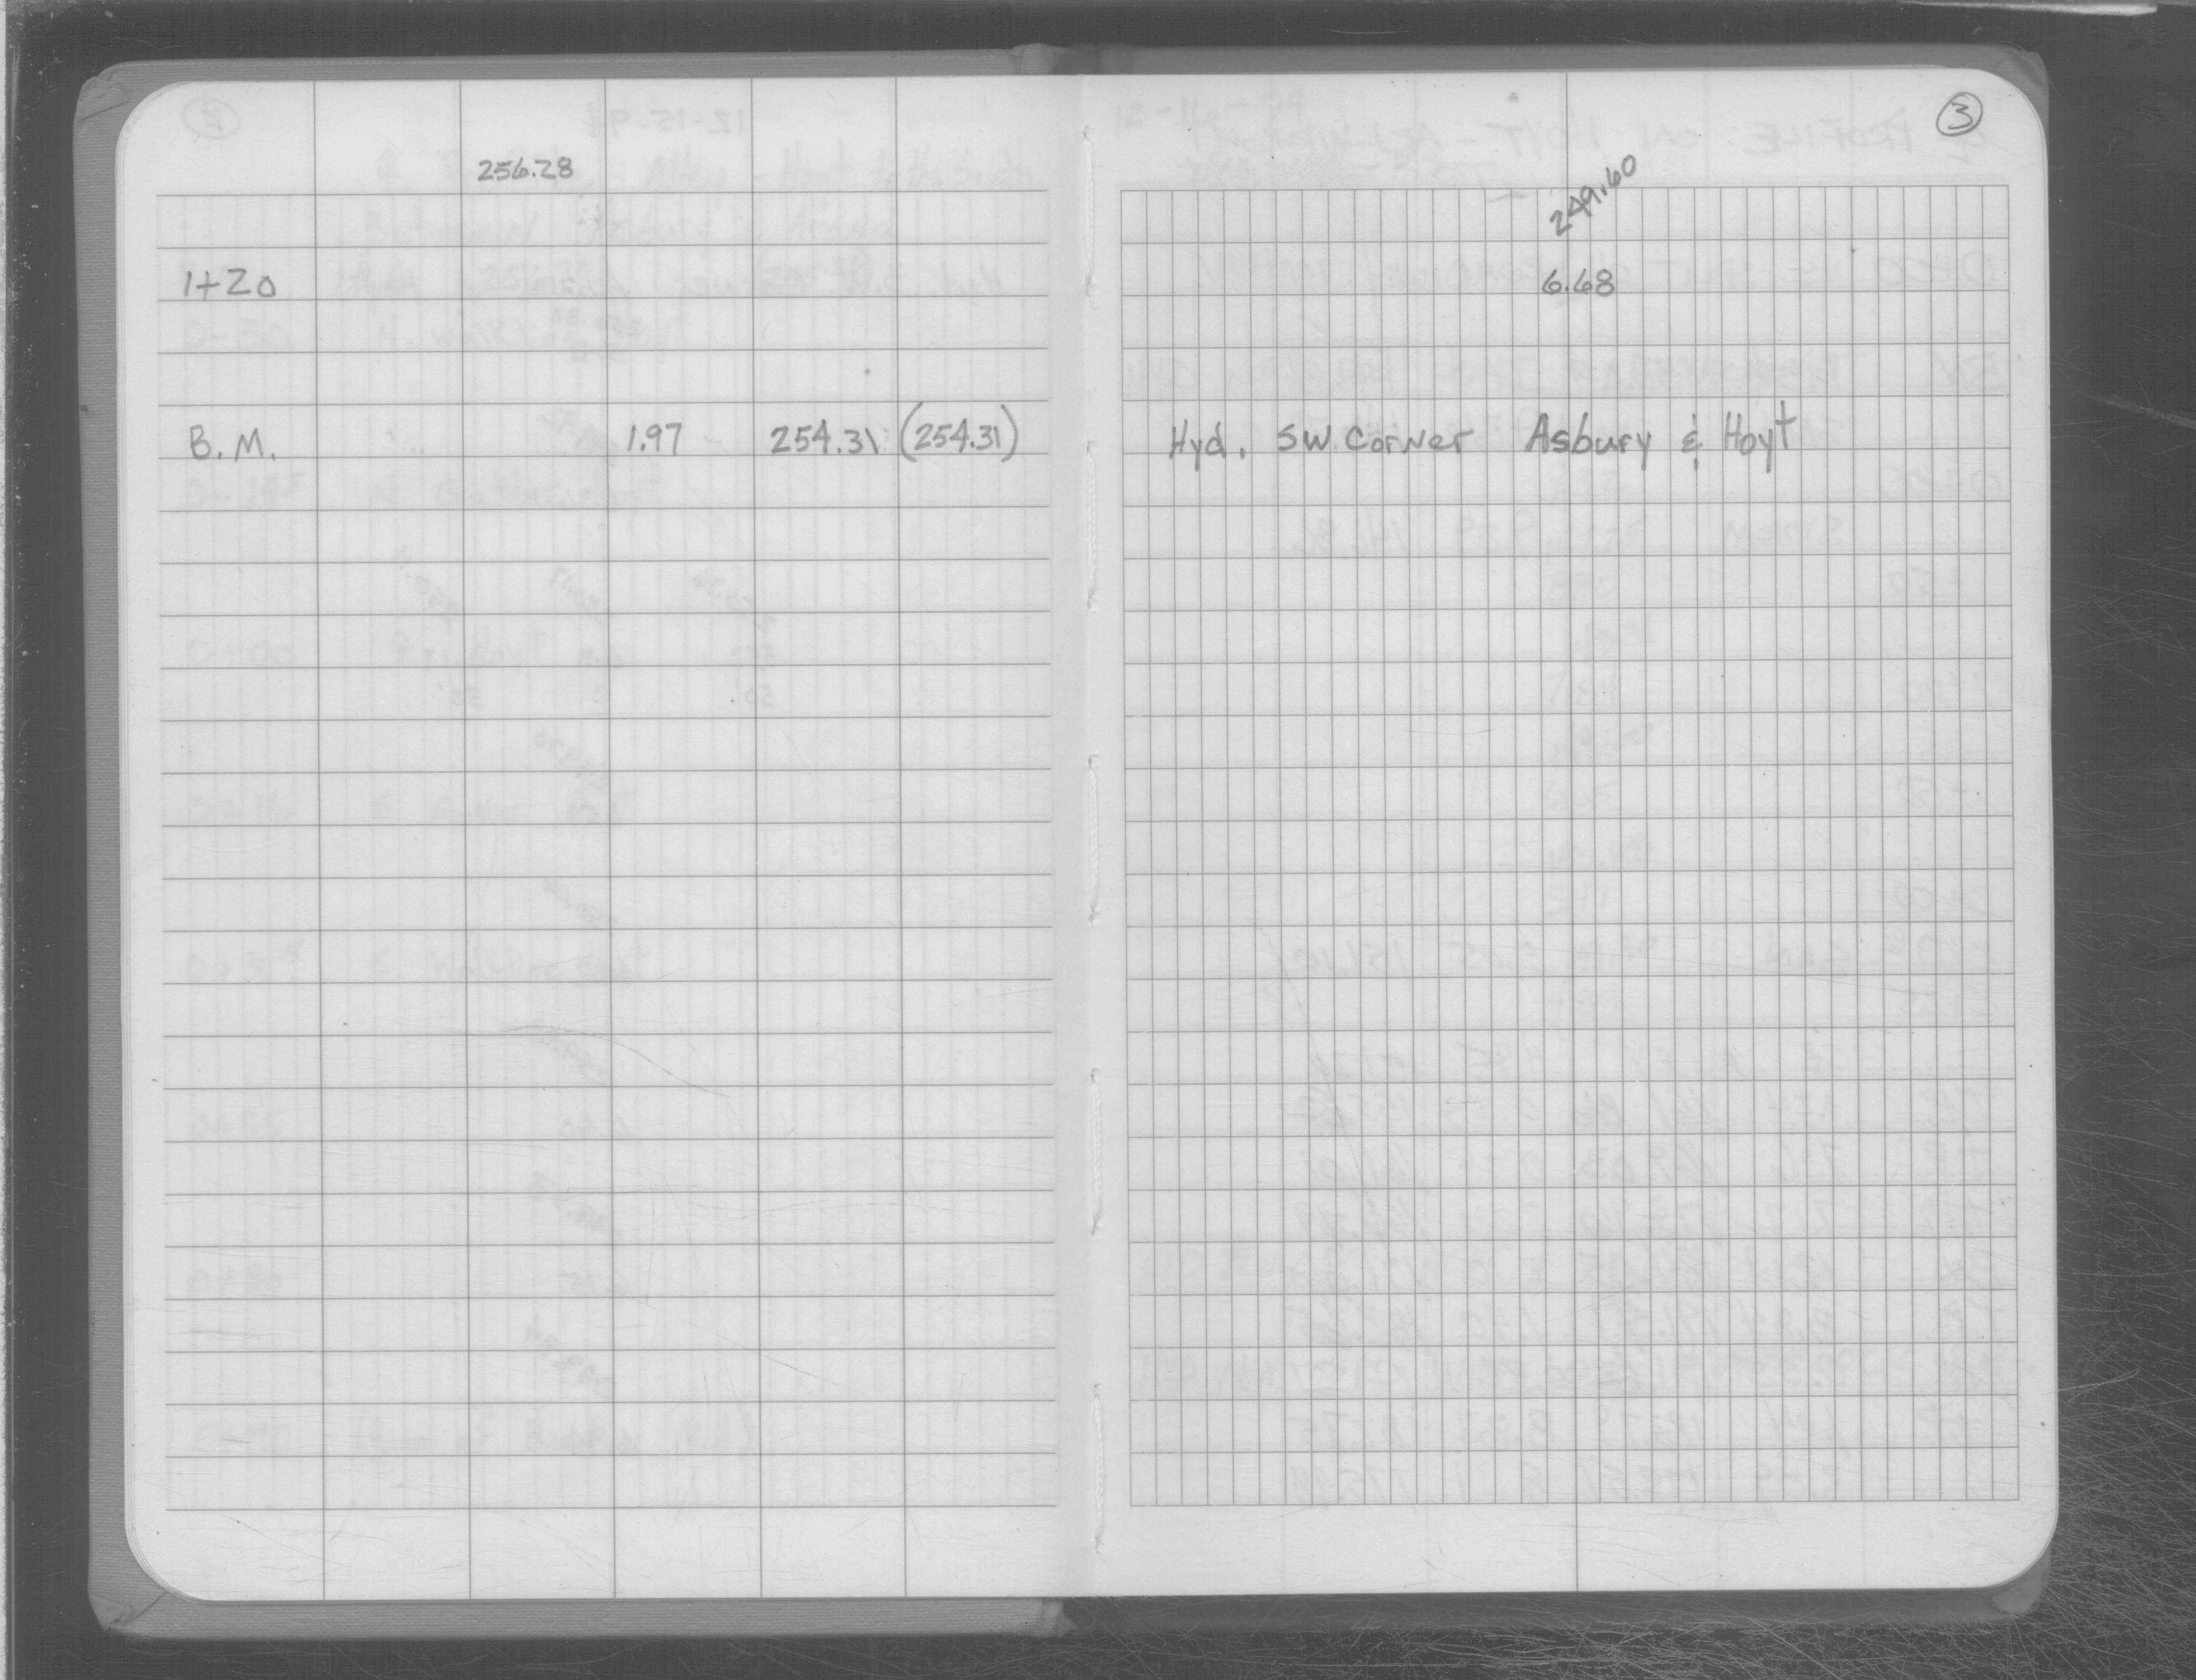 3
256.28
249.60
1+20 6.68
B.M. 1.97 254.31 (254.31) Hyd. SW Corner Asbury & Hoyt